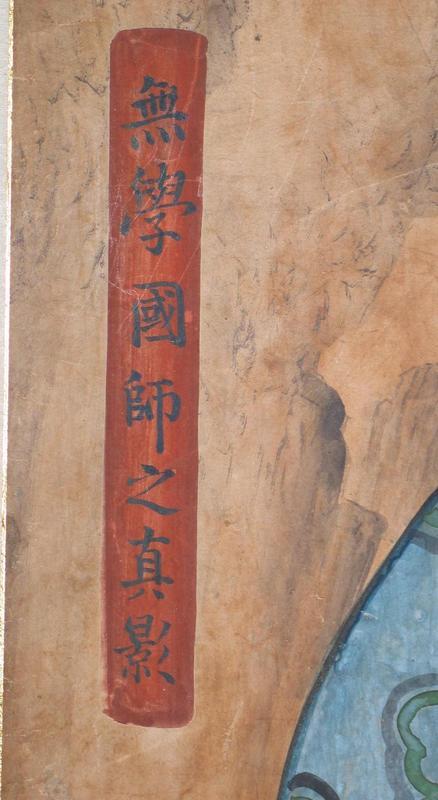 無學國師之真影